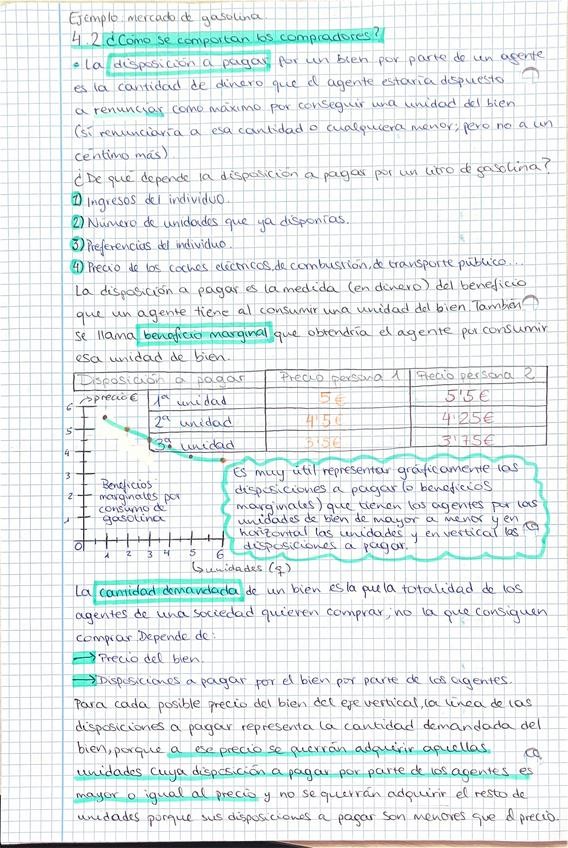 Ejemplo: mercado de gasolina.
4.2 ¿Cómo se comportan los compradores?
• La disposición a pagar por un bien por parte de un agente
es la cantidad de dinero que el agente estaría dispuesto
a renunciar como máximo por conseguir una unidad del bien
(sí renunciaría a esa cantidad o cualquiera menor; pero no a un
céntimo más).
¿De qué depende la disposición a pagar por un litro de gasolina?
1) Ingresos del individuo.
2) Número de unidades que ya disponías.
3) Preferencias del individuo.
4) Precio de los coches eléctricos, de combustión, de transporte público...
La disposición a pagar es la medida (en dinero) del beneficio
que un agente tiene al consumir una unidad del bien. También
se llama beneficio marginal que obtendría el agente por consumir
esa unidad de bien.
Disposición a pagar Precio persona 1 Precio persona 2
1ª unidad 5€ 5'5€
2ª unidad 4'5€ 4'25€
3ª unidad 3'5€ 3'75€
precio €
6
5
4
3
2
1
0
1 2 3 4 5 6
unidades (q)
Beneficios
marginales por
consumo de
gasolina
Es muy útil representar gráficamente las
disposiciones a pagar (o beneficios
marginales) que tienen los agentes por las
unidades de bien de mayor a menor y en
horizontal las unidades y en vertical las
disposiciones a pagar.
La cantidad demandada de un bien es la que la totalidad de los
agentes de una sociedad quieren comprar; no la que consiguen
comprar Depende de:
→ Precio del bien.
→ Disposiciones a pagar por el bien por parte de los agentes.
Para cada posible precio del bien del eje vertical, la línea de las
disposiciones a pagar representa la cantidad demandada del
bien, porque a ese precio se querrán adquirir aquellas
unidades cuya disposición a pagar por parte de los agentes es
mayor o igual al precio y no se querrán adquirir el resto de
unidades porque sus disposiciones a pagar son menores que el precio.